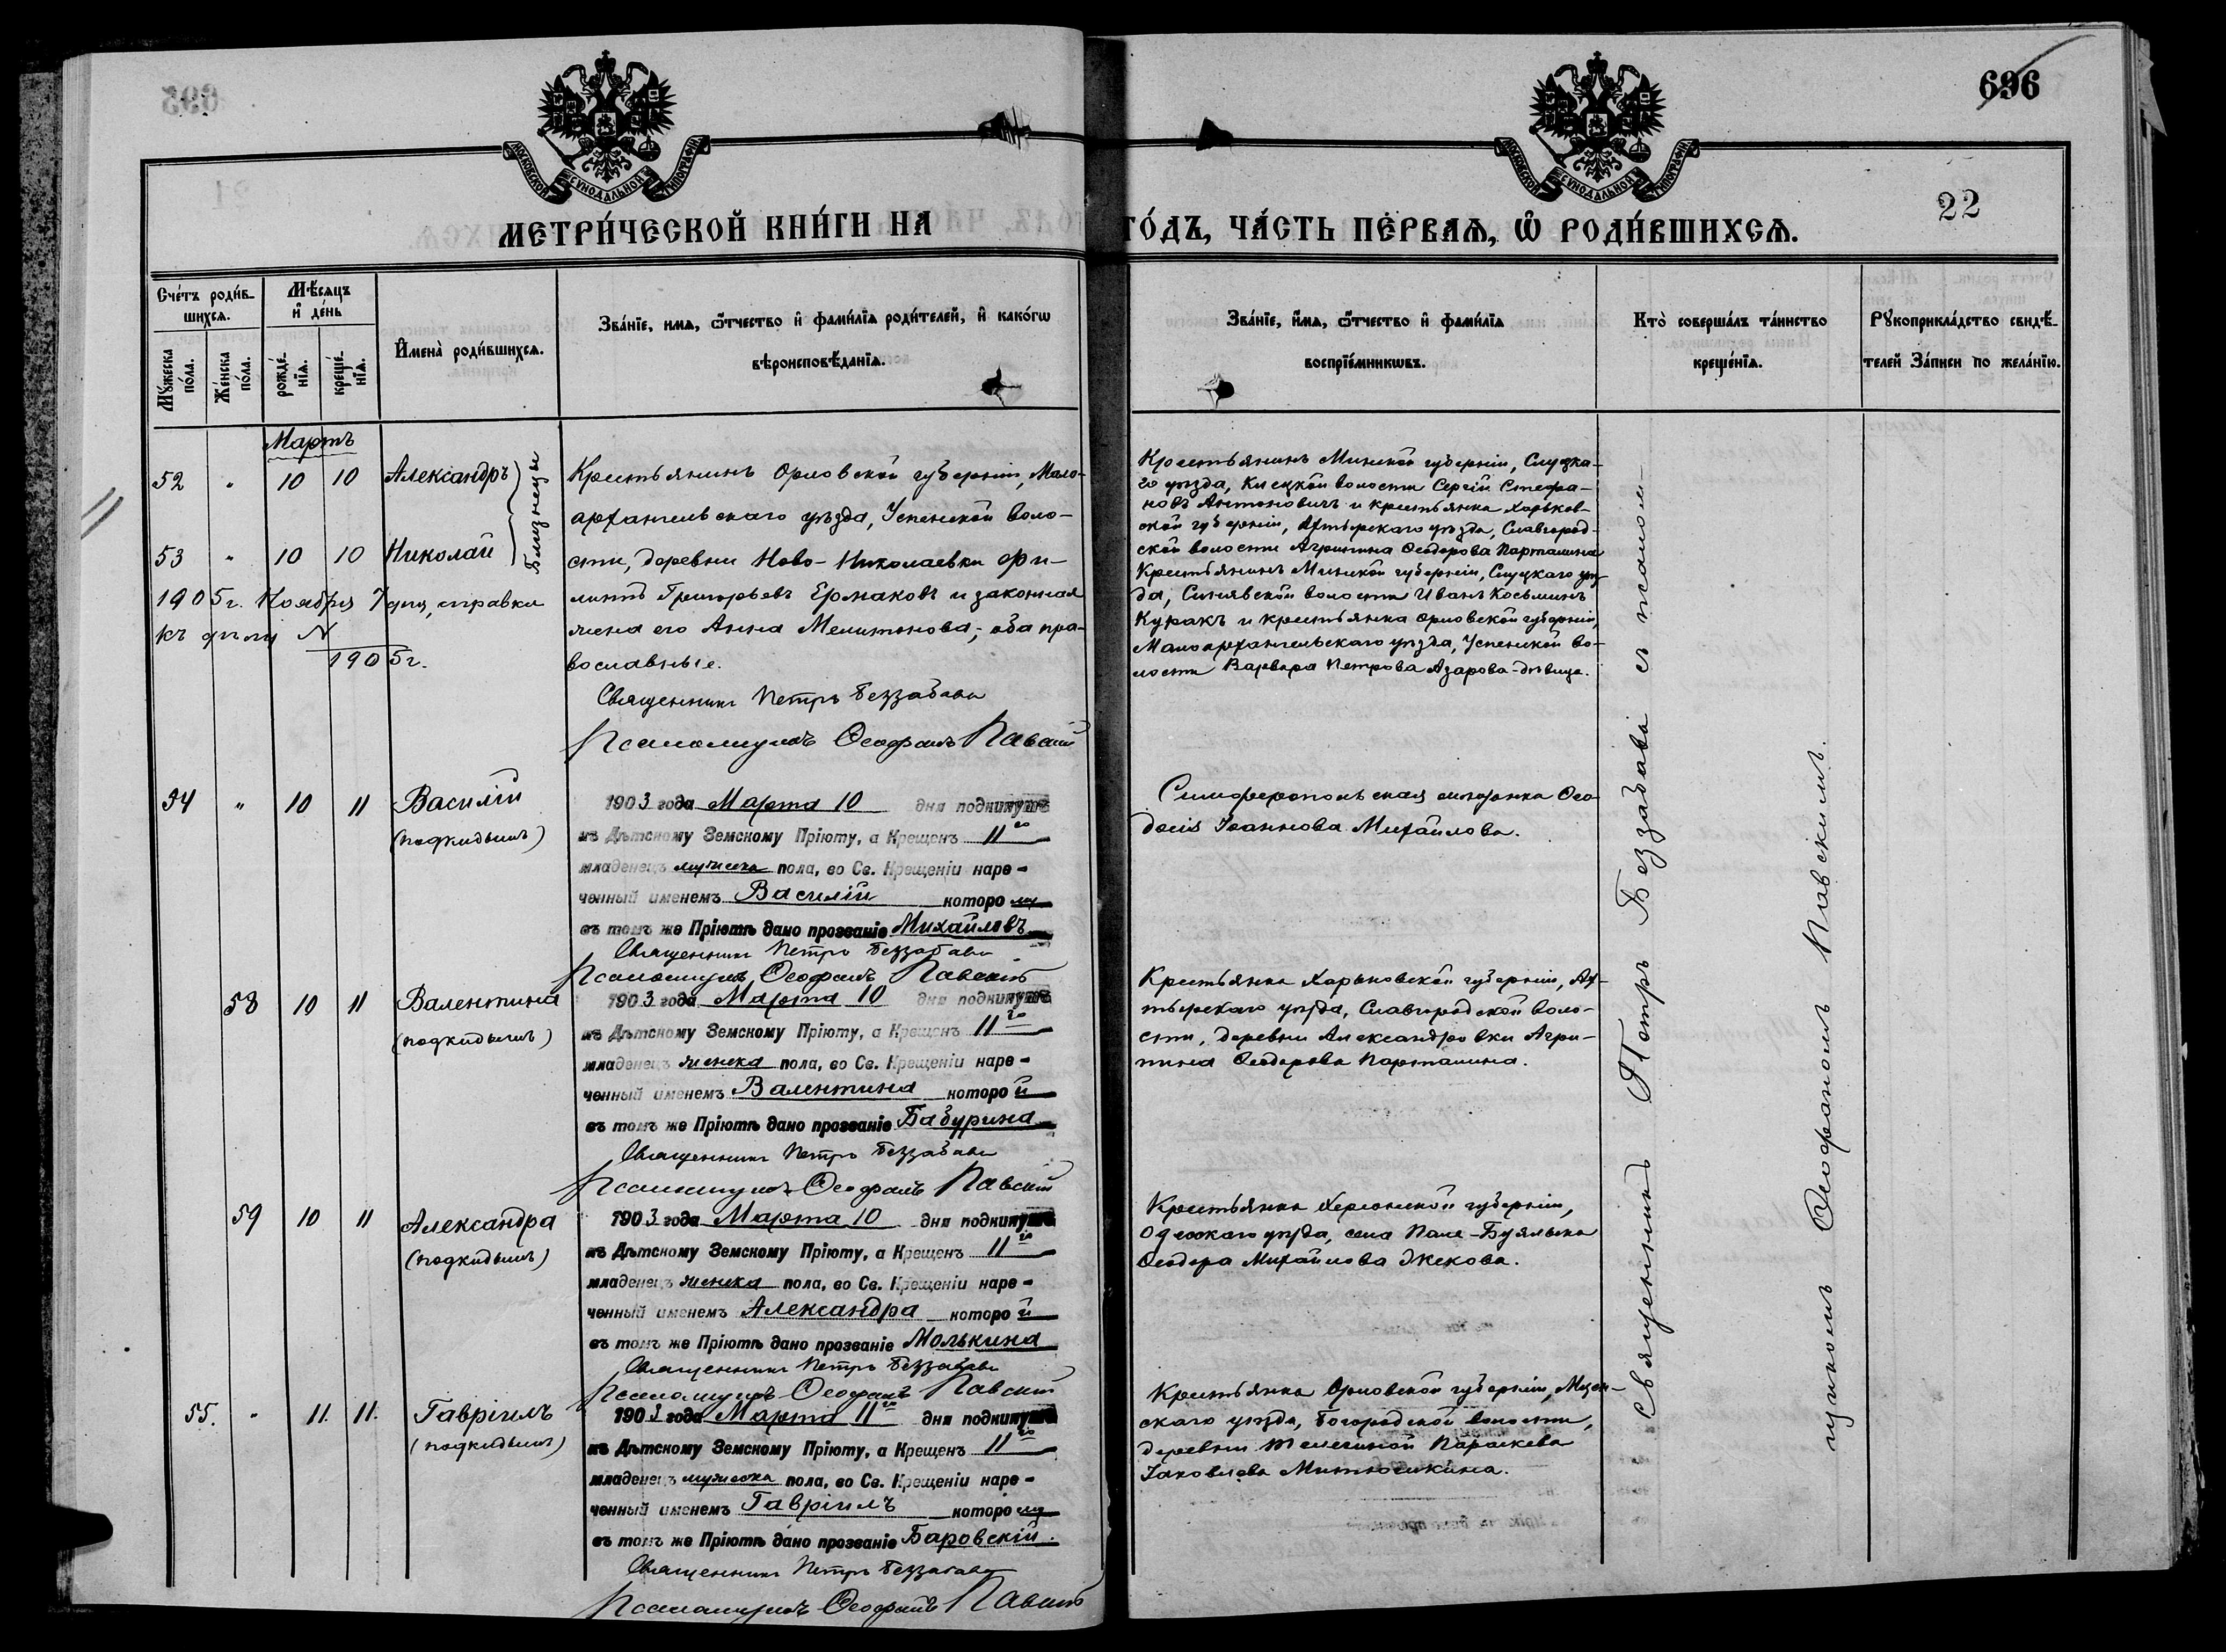 696
22
МОСКОВСКОЙ СУНОДАЛЬНОЙ ТИПОГРАФІИ
МОСКОВСКОЙ СУНОДАЛЬНОЙ ТИПОГРАФІИ
МЕТРИ́ЧЕСКОЙ КНИ́ГИ НА
ГО́ДЪ, ЧА́СТЬ ПЕ́РВАѦ, Ѡ҆ РОДИ́ВШИХСѦ.
Сче́тъ роди́в-
шихсѧ.
Мѣ́сѧцъ
и҆ де́нь
Мꙋ́жеска
по́ла.
Же́нска
по́ла.
рожде́-
нїѧ.
креще́-
нїѧ.
И҆мена̀ роди́вшихсѧ.
Зва́нїе, имѧ, ѻ҆́тчество и҆ фами́лїѧ роди́телей, и҆ како́гѡ
вѣроисповѣ́данїѧ.
Зва́нїе, и҆́мѧ, ѻ҆́тчество и҆ фами́лїѧ
воспрїе́мникѡвъ.
Кто̀ соверша́лъ та́инство
креще́нїѧ.
Рꙋкоприкла́дство свидѣ́-
телей За́писи по жела́нїю.
Мартъ
52 " 10 10 Александръ
53 " 10 10 Николай
Близнецы
1905 г. Ноября 7 дня, справка
къ дѣлу N
1905 г.
Крестьянинъ Орловской губерніи, Мало-
архангельскаго уѣзда, Успенской воло-
сти, деревни Ново-Николаевки Фи-
липпъ Григорьевъ Ермаковъ и законная
жена его Анна Мелитонова; оба пра-
вославные.
Священникъ Петръ Беззабава
Псаломщикъ Ѳеофанъ Павскій
Крестьянинъ Минской губерніи, Слуцка-
го уѣзда, волости Сергій Стефа-
новъ Антоновичъ и крестьянка Харьков-
ской губерніи, Ахтырскаго уѣзда, Славгород-
ской волости Агрипина Ѳеодорова Парталина
Крестьянинъ Минской губерніи, Слуцкаго уѣз-
да, Синявской волости Иванъ Косьминъ
Куракъ и крестьянка Орловской губерніи,
Малоархангельскаго уѣзда, Успенской во-
лости Варвара Петрова Азарова-дѣвица.
54 " 10 11 Василій
(подкидышъ)
1903 года Марта 10 дня подкинутъ
къ Дѣтскому Земскому Пріюту, а Крещенъ 11го
младенецъ мужеска пола, во Св. Крещеніи наре-
ченный именемъ Василій которому
въ томъ же Пріютѣ дано прозваніе Михайловъ
Священникъ Петръ Беззабава
Псаломщикъ Ѳеофанъ Павскій
Симферопольская мѣщанка Ѳео-
досія Іоаннова Михайлова.
58 10 11 Валентина
(подкидышъ)
1903 года Марта 10 дня подкинута
къ Дѣтскому Земскому Пріюту, а Крещенъ 11го
младенецъ женска пола, во Св. Крещеніи наре-
ченный именемъ Валентина которой
въ томъ же Пріютѣ дано прозваніе Бабурина
Священникъ Петръ Беззабава
Псаломщикъ Ѳеофанъ Павскій
Крестьянка Харьковской губерніи, Ах-
тырскаго уѣзда, Славгородской воло-
сти, деревни Александровки Агри-
пина Ѳеодорова Парталина.
59 10 11 Александра
(подкидышъ)
1903 года Марта 10 дня подкинута
къ Дѣтскому Земскому Пріюту, а Крещенъ 11го
младенецъ женска пола, во Св. Крещеніи наре-
ченный именемъ Александра которой
въ томъ же Пріютѣ дано прозваніе Молькина
Священникъ Петръ Беззабава
Псаломщикъ Ѳеофанъ Павскій
Крестьянка Херсонской губерніи,
Одесскаго уѣзда, села Буялыка
Ѳеодора Михайлова Джекова.
55. " 11. 11. Гавріилъ
(подкидышъ)
1903 года Марта 11го дня подкинутъ
къ Дѣтскому Земскому Пріюту, а Крещенъ 11го
младенецъ мужеска пола, во Св. Крещеніи наре-
ченный именемъ Гавріилъ которому
въ томъ же Пріютѣ дано прозваніе Баровскій.
Священникъ Петръ Беззабава
Псаломщикъ Ѳеофанъ Павскій
Крестьянка Орловской губерніи, Мцен-
скаго уѣзда, Богородской волости,
деревни Телегиной Параскева
Іаковлева Митюшкина.
Священникъ Петръ Беззабава съ псалом-
щикомъ Ѳеофаномъ Павскимъ.